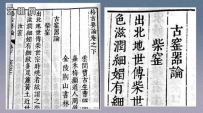 格古要論卷之下
金陵荊山書林
古窑器論
柴窑
出北地世傳柴世宗時燒者故謂之
色滋潤細媚有細紋多足粗黃土近世
汝窑
古窑器論
柴窑
出北地世傳柴
色滋潤細媚有細